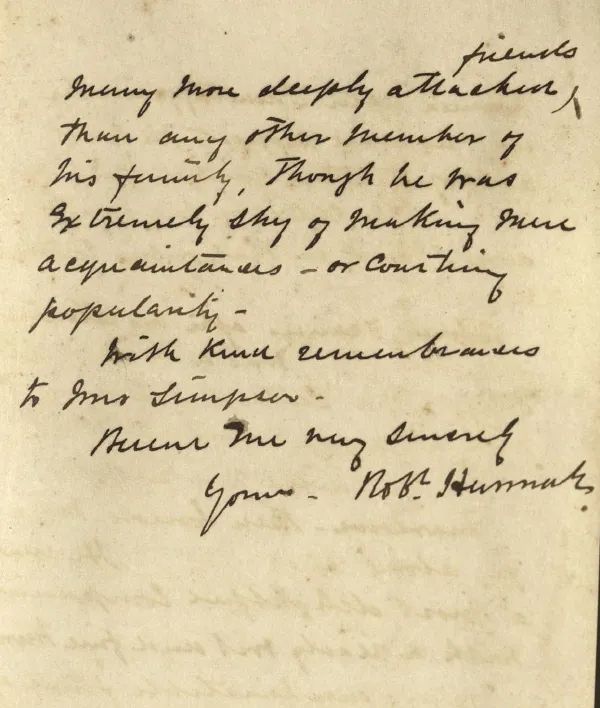 friends
many more deeply attached,
than any other member of
his family, Though he was
Extremely shy of making mere
acquaintances - or Courting
popularity -
With Kind remembrances
to Mrs Simpson -
Believe Me very Sincerely
Yours - Robt. Hannah.